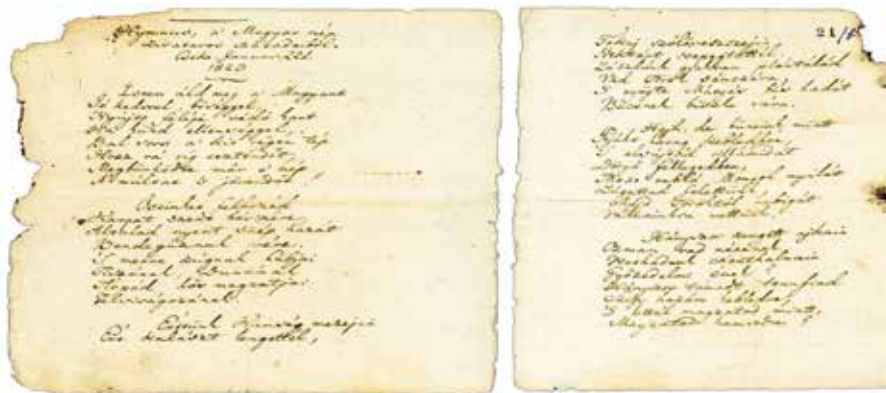 Hymnus, a' Magyar nép
zivataros századaiból.
Cseke Januar. 22d.
1823
Isten áldd meg a' Magyart
Jó kedvvel, bőséggel,
Nyújts feléje védő kart
Ha küzd ellenséggel;
Bal sors a' kit régen tép
Hozz rá víg esztendőt,
Megbűnhődte már e' nép
A' multat 's jövendőt.
Őseinket felhozád
Kárpát szent bérczére,
Általad nyert szép hazát
Bendegúznak vére.
'S merre zúgnak habjai
Tiszának, Dunának
Árpád hős magzatjai
Felvirágozának.
Értünk Kunság mezején
Ért kalászt lengettél,
21/
Tokaj szőlővesszején
Nektárt csepegtettél.
Zászlónk gyakran plántálád
Vad Török sánczára,
'S nyögte Mátyás bús hadát
Bécsnek büszke vára.
Hajh, de bűneink miatt
Gyúlt harag kebledben,
'S elsújtád villámidat
Dörgő fellegedben,
Most rabló Mongol nyilát
Zúgattad felettünk,
Majd Töröktől rabigát
Vállainkra vettünk.
Hányszor zengett ajkain
Ozman vad népének
Vert hadunk csonthalmain
Győzedelmi ének!
Hányszor támadt tenfiad
Szép hazám kebledre,
'S lettél magzatod miatt
Magzatod hamvedre!